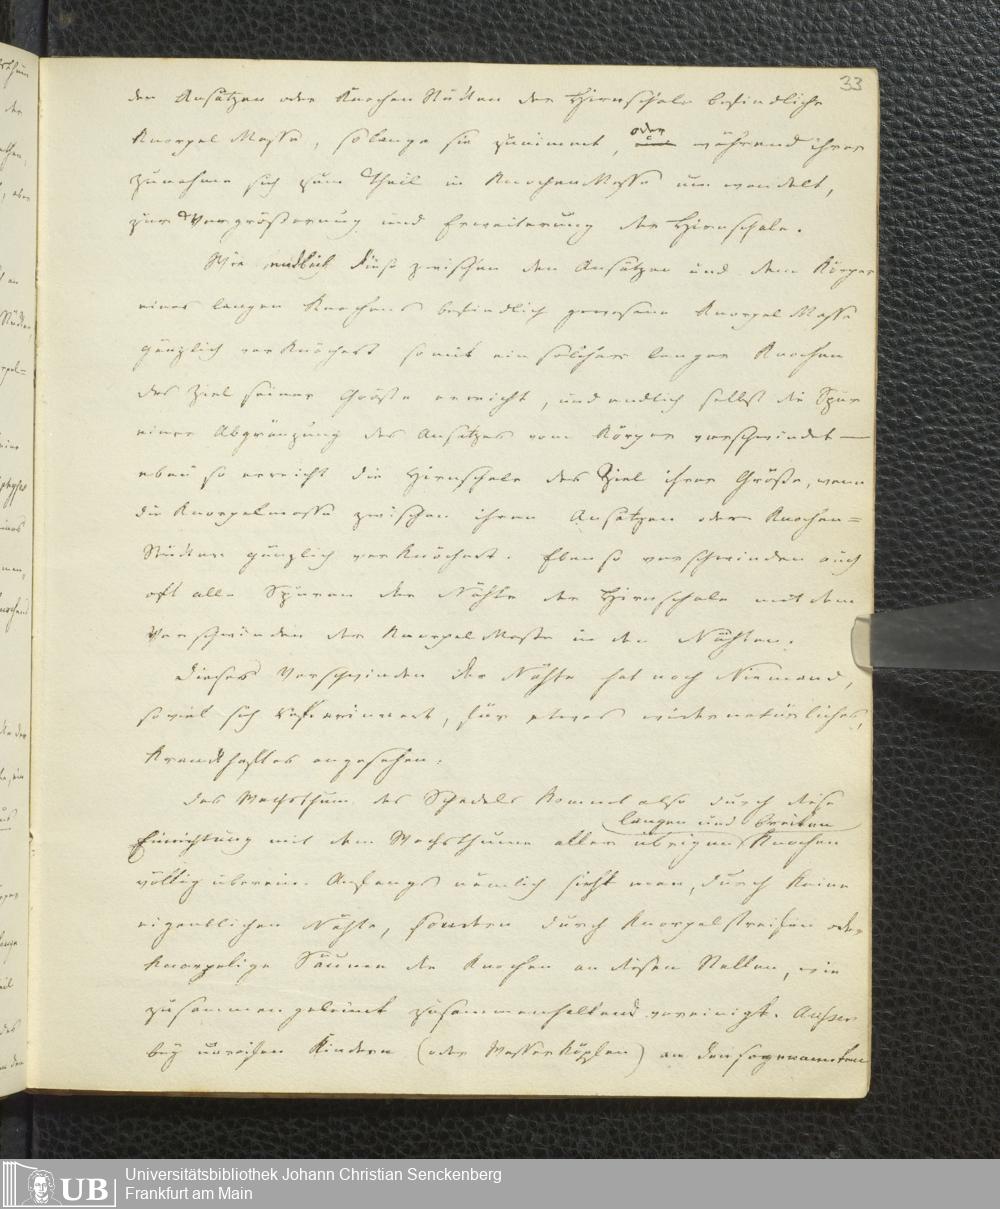 33
den Ansätzen oder KnochenStücken der Hirnschale befindliche
Knorpel Masse, solange sie zunimmt, oder während ihrer
Zunahme sich zum Theil in KnochenMasse umwandelt,
zur Vergrößerung und Erweiterung der Hirnschale.
Wie endlich diese zwischen den Ansätzen und dem Körper
eines langen Knochens befindlich gewesene Knorpel Masse
gänzlich verknöchert somit ein solcher langer Knochen
das Ziel seiner Größe erreicht, und endlich selbst die Spur
einer Abgränzung des Ansatzes vom Körper verschwindet —
eben so erreicht die Hirnschale das Ziel ihrer Größe, wenn
die Knorpelmasse zwischen ihren Ansätzen oder Knochen=
Stücken gänzlich verknöchert. Ebenso verschwinden auch
oft alle Spuren der Nähte der Hirnschale mit dem
Verschwinden der Knorpel Masse in den Nähten.
Dieses Verschwinden der Nähte hat noch Niemand,
soviel ich mich erinnert, für etwas widernatürliches,
Krankhaftes angesehen.
Das Wachsthum des Schedels kommt also durch diese
langen und breiten
Einrichtung mit dem Wachsthume aller übrigen Knochen
völlig überein. Anfangs nämlich sieht man, durch keine
eigentlichen Nähte, sondern durch Knorpelstreifen oder
knorpelige Säume die Knochen an diesen Stellen, wie
zusammengeleimt zusammenhaltend vereinigt. Ausser
bey unreifen Kindern (oder Wasserköpfen) an den sogenannten
UB
Universitätsbibliothek Johann Christian Senckenberg
Frankfurt am Main